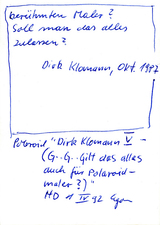 berühmten Maler?
Soll man das alles
zulassen?
Dirk Klomann, Okt. 1997
Polaroid "Dirk Klomann V –
(G..G..Gilt das alles
auch für Polaroid-
maler?)"
MD 1 IV 92